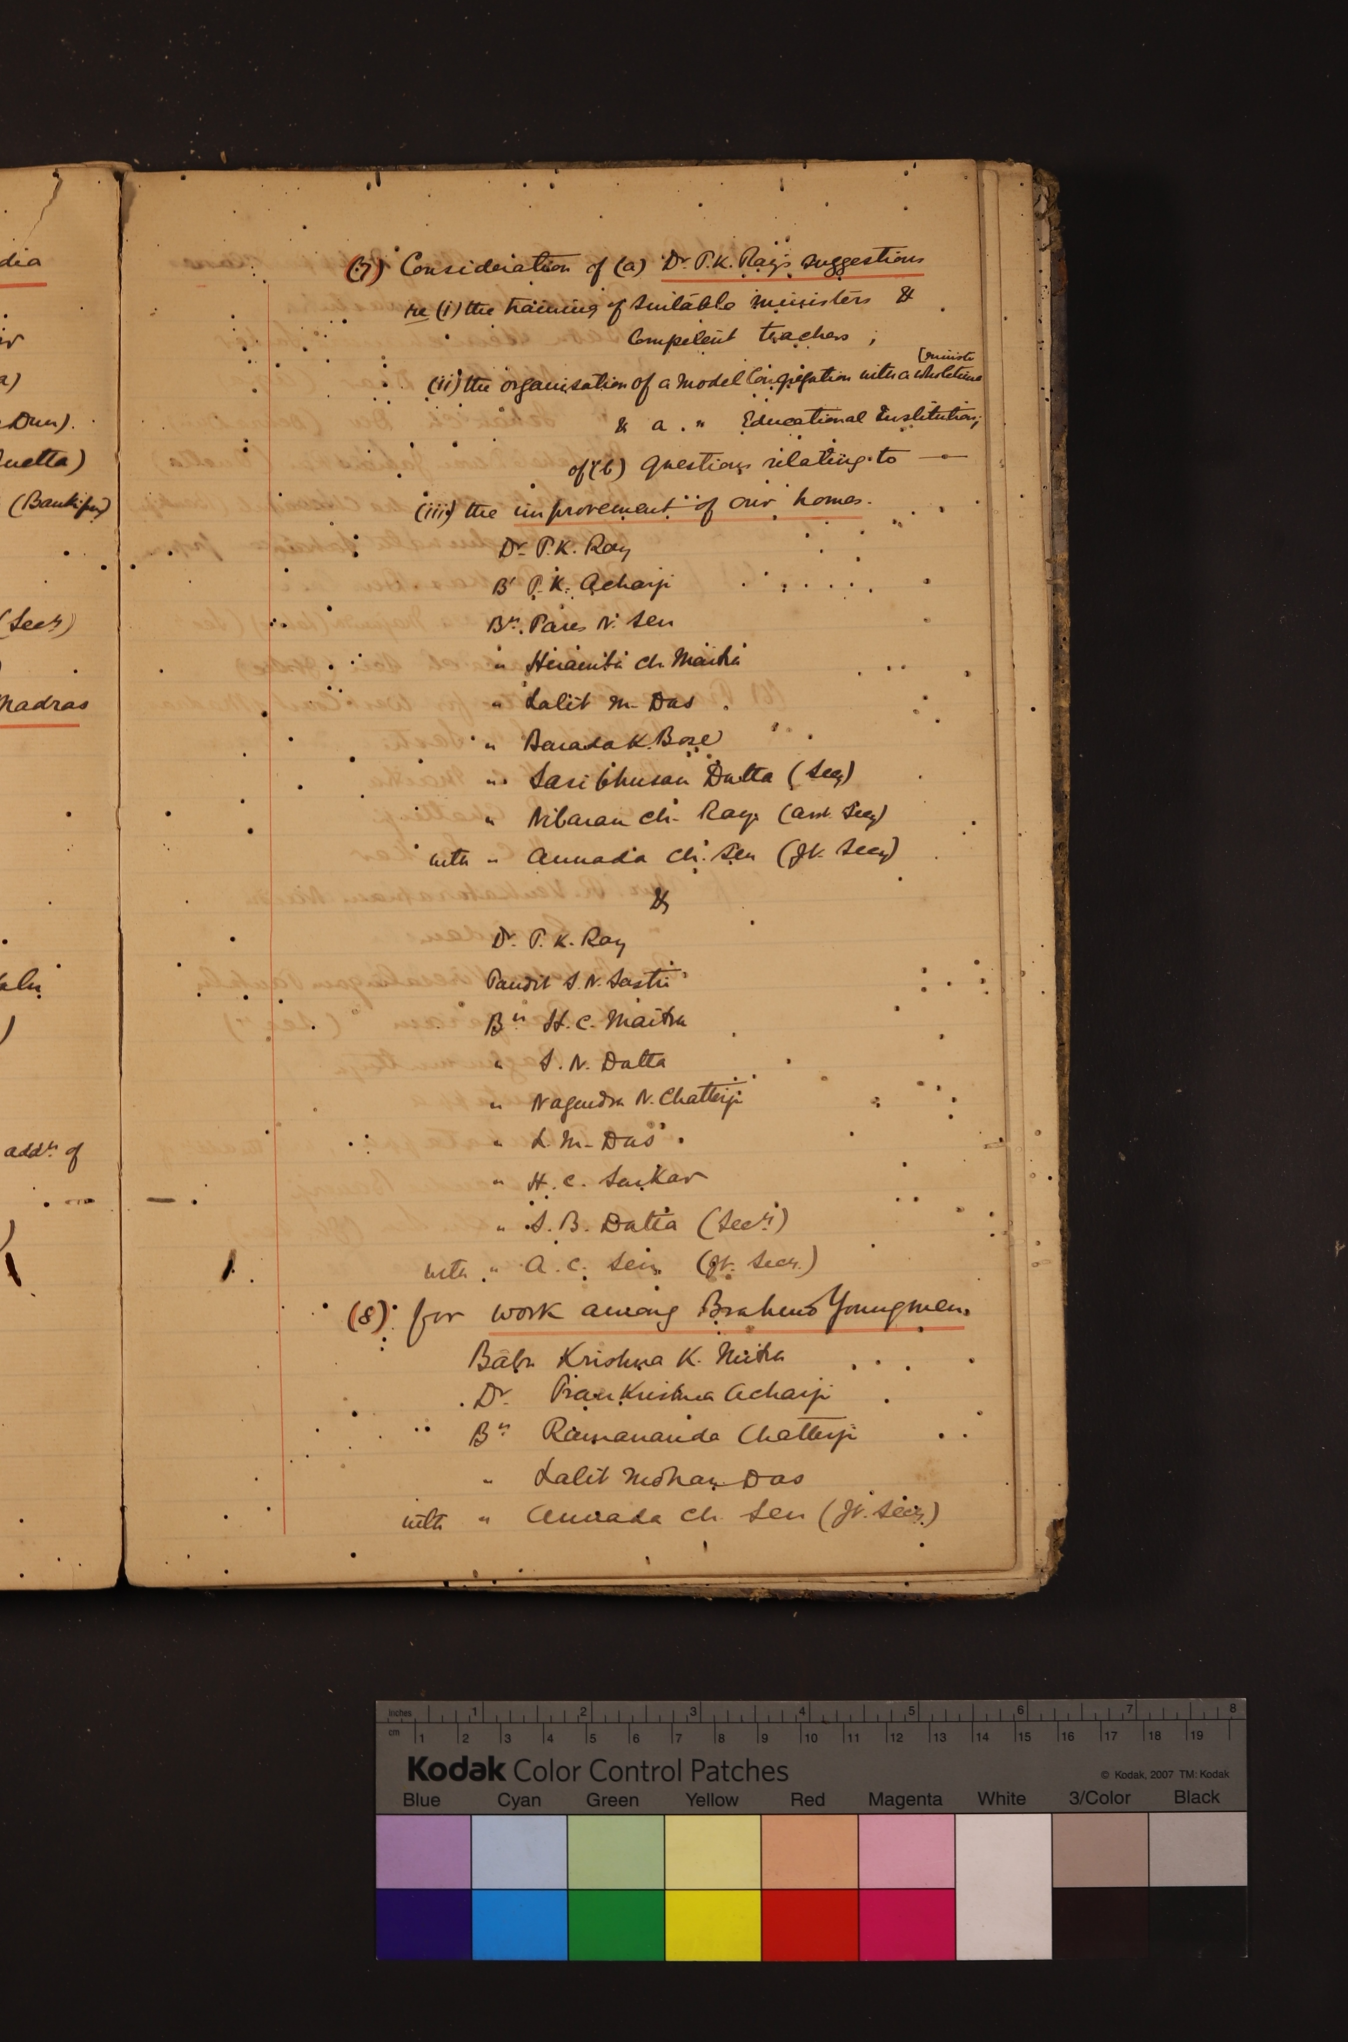 dia
a)
Dun).
Quetta)
(Bankipur)
(Secy)
)
Madras
)
addn. of
)
(7) Consideration of (a) Dr. P.K. Ray's suggestions
re (i) the training of suitable ministers &
Competent teachers;
[minister
(ii) the organisation of a model Congregation with a wholetime
& a " Educational Institution;
of (b) Questions relating to —
(iii) the improvement of our homes.
Dr. P.K. Ray
Br P.K. Acharji
Bu. Pares N. Sen
" Heramba Ch. Maitra
" Lalit M. Das
" Barada K. Bose
" Sasibhusan Dutta (Secy)
" Nibaran Ch. Ray (asst. Secy)
with " Annada Ch. Sen (Jt. Secy)
&
Dr. P.K. Ray
Pandit S.N. Sastri
Bu H.C. Maitra
" S.N. Datta
" Nagendra N. Chatterji
" L.M. Das
" H.C. Sarkar
" S.B. Datta (Secy)
with " A.C. Sen (Jt. Secy.)
(8) for work among Brahmo Youngmen.
Babu Krishna K. Mitra
Dr. Pran Krishna Acharji
Bu Ramananda Chatterji
" Lalit Mohan Das
with " Annada Ch. Sen (Jt. Secy)
Inches 1 2 3 4 5 6 7 8
cm 1 2 3 4 5 6 7 8 9 10 11 12 13 14 15 16 17 18 19
Kodak Color Control Patches
© Kodak, 2007 TM: Kodak
Blue Cyan Green Yellow Red Magenta White 3/Color Black